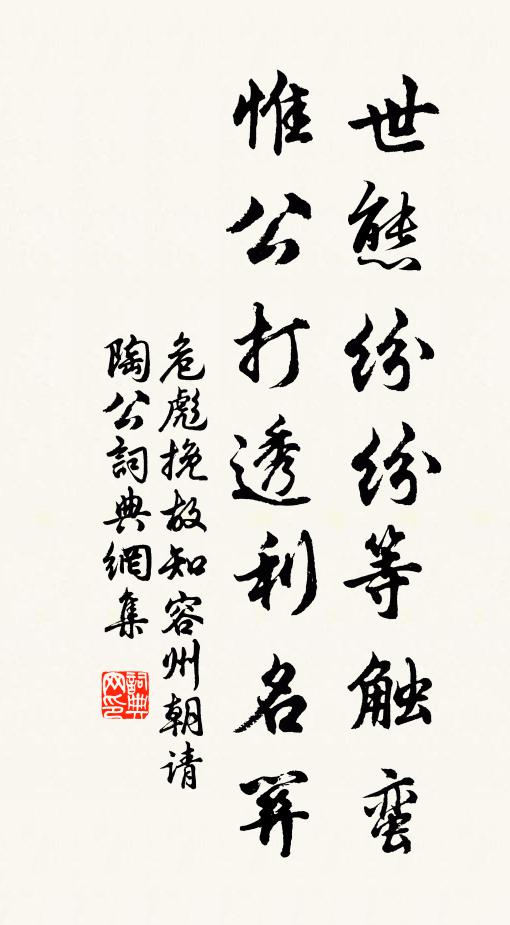 世態纷纷等触蛮
惟公打透利名関
危彪挽故知容州朝请
陶公詞典網集
詞典网印